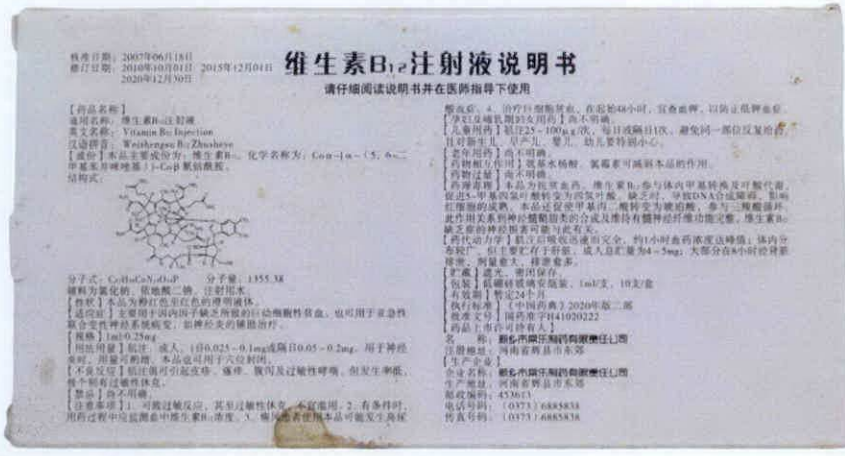 核准日期：2007年06月18日
修订日期：2010年10月01日 2015年12月01日
2020年12月30日
维生素B₁₂注射液说明书
请仔细阅读说明书并在医师指导下使用
【药品名称】
通用名称：维生素B₁₂注射液
英文名称：Vitamin B₁₂ Injection
汉语拼音：Weishengsu B₁₂ Zhusheye
【成份】本品主要成份为：维生素B₁₂，化学名称为：Coα-[α-（5，6-二
甲基苯并咪唑基）]-Coβ氰钴酰胺。
结构式：
分子式：C₆₃H₈₈CoN₁₄O₁₄P 分子量：1355.38
辅料为氯化钠、依地酸二钠、注射用水。
【性状】本品为粉红色至红色的澄明液体。
【适应症】主要用于因内因子缺乏所致的巨幼细胞性贫血，也可用于亚急性
联合变性神经系统病变，如神经炎的辅助治疗。
【规格】1ml:0.25mg
【用法用量】肌注，成人，1日0.025～0.1mg或隔日0.05～0.2mg。用于神经
炎时，用量可酌增。本品也可用于穴位封闭。
【不良反应】肌注偶可引起皮疹、瘙痒、腹泻及过敏性哮喘，但发生率低，
极个别有过敏性休克。
【禁忌】尚不明确。
【注意事项】1、可致过敏反应，甚至过敏性休克，不宜滥用。2、有条件时，
用药过程中应监测血中维生素B₁₂浓度。3、痛风患者使用本品可能发生高尿
酸血症。4、治疗巨细胞贫血，在起始48小时，宜查血钾，以防止低钾血症。
【孕妇及哺乳期妇女用药】尚不明确。
【儿童用药】肌注25～100μg/次，每日或隔日1次，避免同一部位反复给药，
且对新生儿、早产儿、婴儿、幼儿要特别小心。
【老年用药】尚不明确。
【药物相互作用】氨基水杨酸、氯霉素可减弱本品的作用。
【药物过量】尚不明确。
【药理毒理】本品为抗贫血药。维生素B₁₂参与体内甲基转换及叶酸代谢，
促进5-甲基四氢叶酸转变为四氢叶酸。缺乏时，导致DNA合成障碍，影响
红细胞的成熟。本品还促使甲基丙二酸转变为琥珀酸，参与三羧酸循环。
此作用关系到神经髓鞘脂类的合成及维持有髓神经纤维功能完整，维生素B₁₂
缺乏症的神经损害可能与此有关。
【药代动力学】肌注后吸收迅速而完全，约1小时血药浓度达峰值；体内分
布较广，但主要贮存于肝脏，成人总贮量为4～5mg；大部分在8小时经肾脏
排泄，剂量愈大，排泄愈多。
【贮藏】遮光，密闭保存。
【包装】低硼硅玻璃安瓿装，1ml/支，10支/盒
【有效期】暂定24个月
【执行标准】《中国药典》2020年版二部
【批准文号】国药准字H41020222
【药品上市许可持有人】
名 称：新乡市常乐制药有限责任公司
注册地址：河南省辉县市东郊
【生产企业】
企业名称：新乡市常乐制药有限责任公司
生产地址：河南省辉县市东郊
邮政编码：453613
电话号码：（0373）6885838
传真号码：（0373）6885838